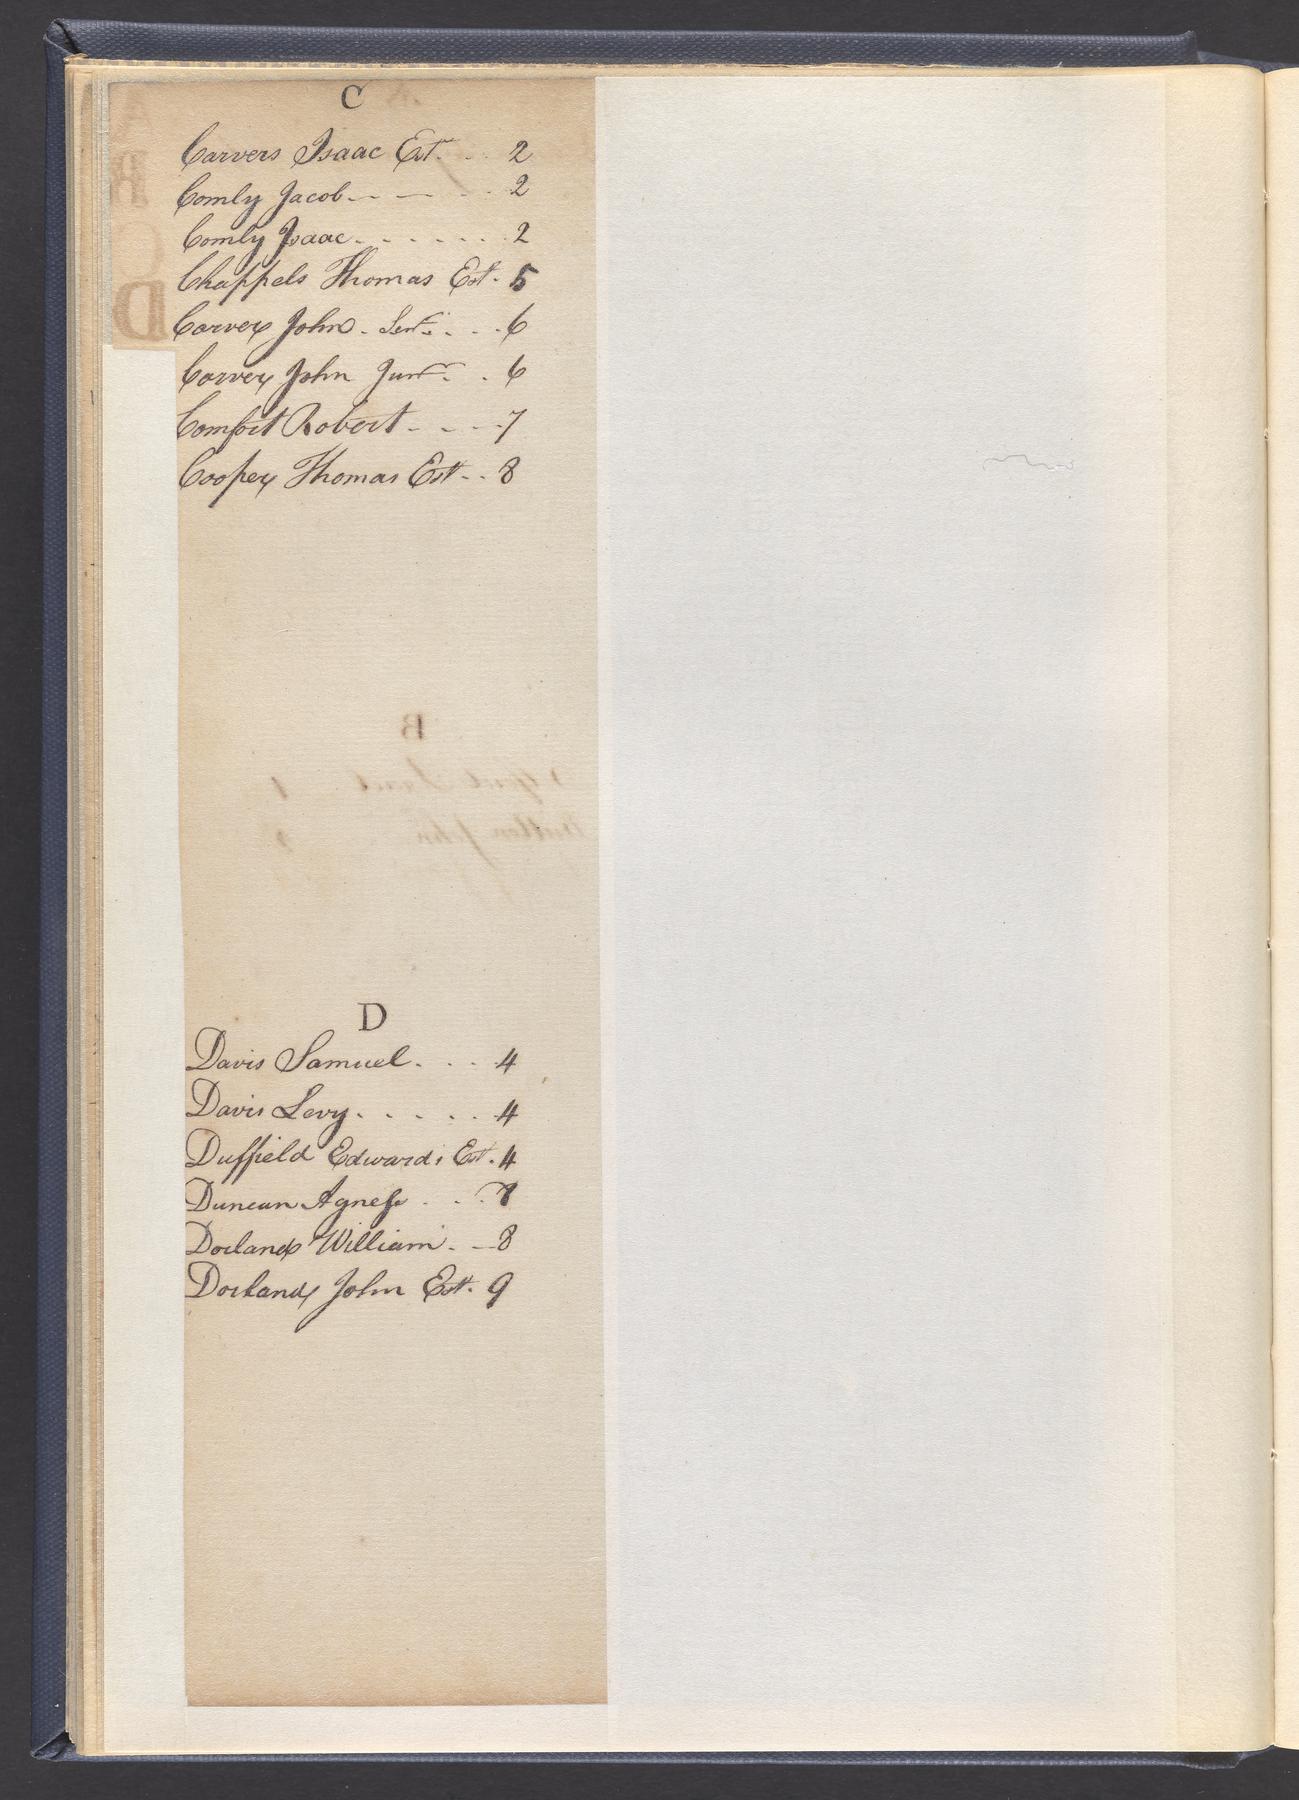 C
Carvers Isaac Est. 2
Comly Jacob 2
Comly Isaac 2
Chappels Thomas Est. 5
Carver John Senr. 6
Carver John Junr. 6
Comfort Robert 7
Cooper Thomas Est. 8
D
Davis Samuel 4
Davis Levy 4
Duffield Edwards Est. 4
Duncan Agness
Dorland William 8
Dorland John Est. 9